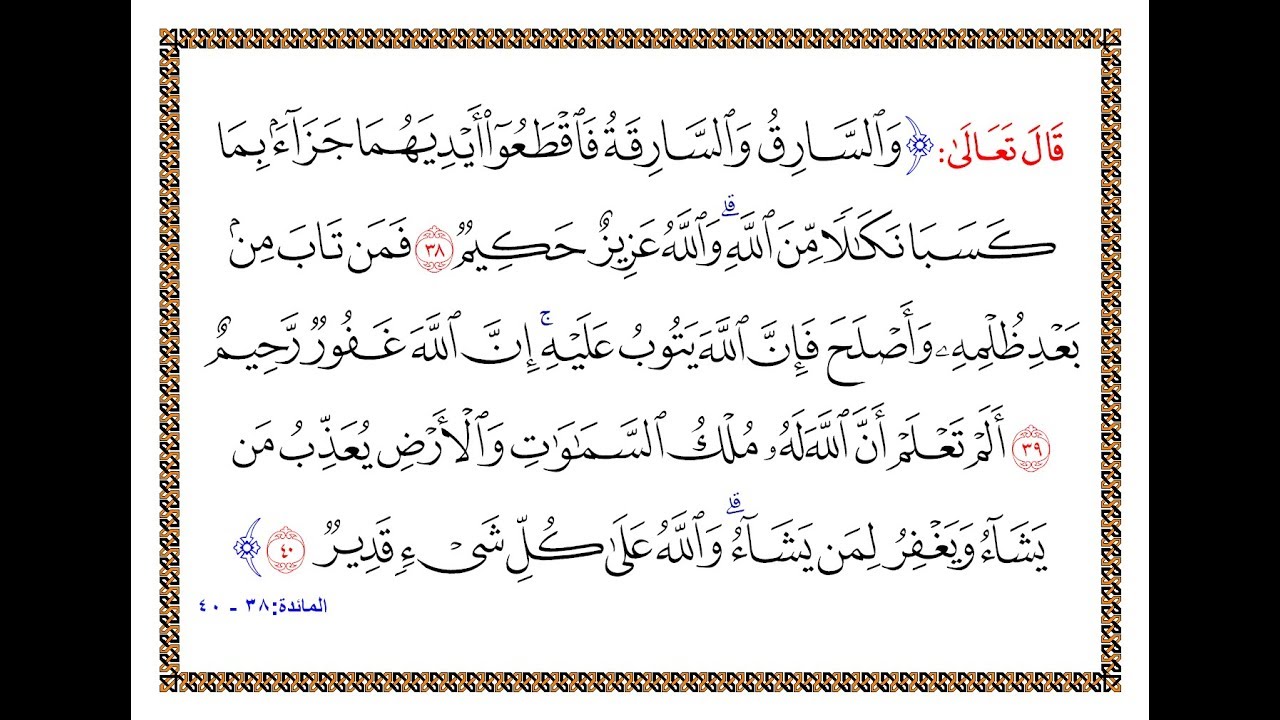 قَالَ تَعَالَىٰ: ﴿ وَٱلسَّارِقُ وَٱلسَّارِقَةُ فَٱقۡطَعُوٓاْ أَيۡدِيَهُمَا جَزَآءَۢ بِمَا
كَسَبَا نَكَٰلٗا مِّنَ ٱللَّهِۗ وَٱللَّهُ عَزِيزٌ حَكِيمٞ ٣٨ فَمَن تَابَ مِنۢ
بَعۡدِ ظُلۡمِهِۦ وَأَصۡلَحَ فَإِنَّ ٱللَّهَ يَتُوبُ عَلَيۡهِۚ إِنَّ ٱللَّهَ غَفُورٞ رَّحِيمٌ
٣٩ أَلَمۡ تَعۡلَمۡ أَنَّ ٱللَّهَ لَهُۥ مُلۡكُ ٱلسَّمَٰوَٰتِ وَٱلۡأَرۡضِ يُعَذِّبُ مَن
يَشَآءُ وَيَغۡفِرُ لِمَن يَشَآءُۗ وَٱللَّهُ عَلَىٰ كُلِّ شَيۡءٖ قَدِيرٞ ٤٠ ﴾
المائدة: ٣٨ - ٤٠